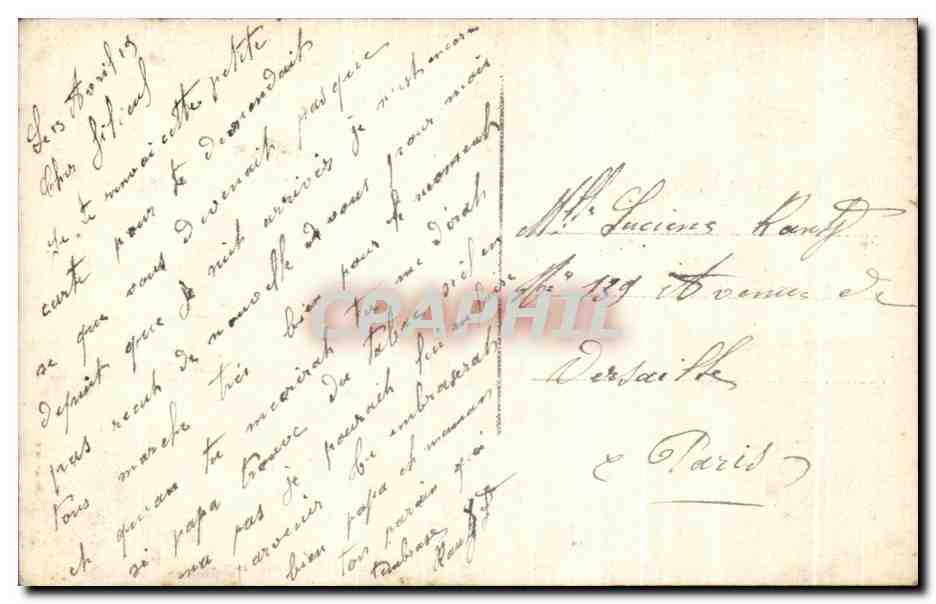 Le 13 Avril 19
Cher filieul
Je te envoi cette petite
carte pour te demendait
se que vous devenait pas que
depuit que Je suit arrivés je n'est encore
pas recuh de nouvelle de vous pour mois
tous marche tres bien pour le moment
eh quan tu mecrirah tu me dirah
si papa trouve du tabac s'il en
na pas je pourrah lui dire
parvenir tu embraserah
bien papa eh maman
ton parain qui
tembrase
Mlle Luciene
No 139 Avenue de
Versaille
Paris
CPAPHIL